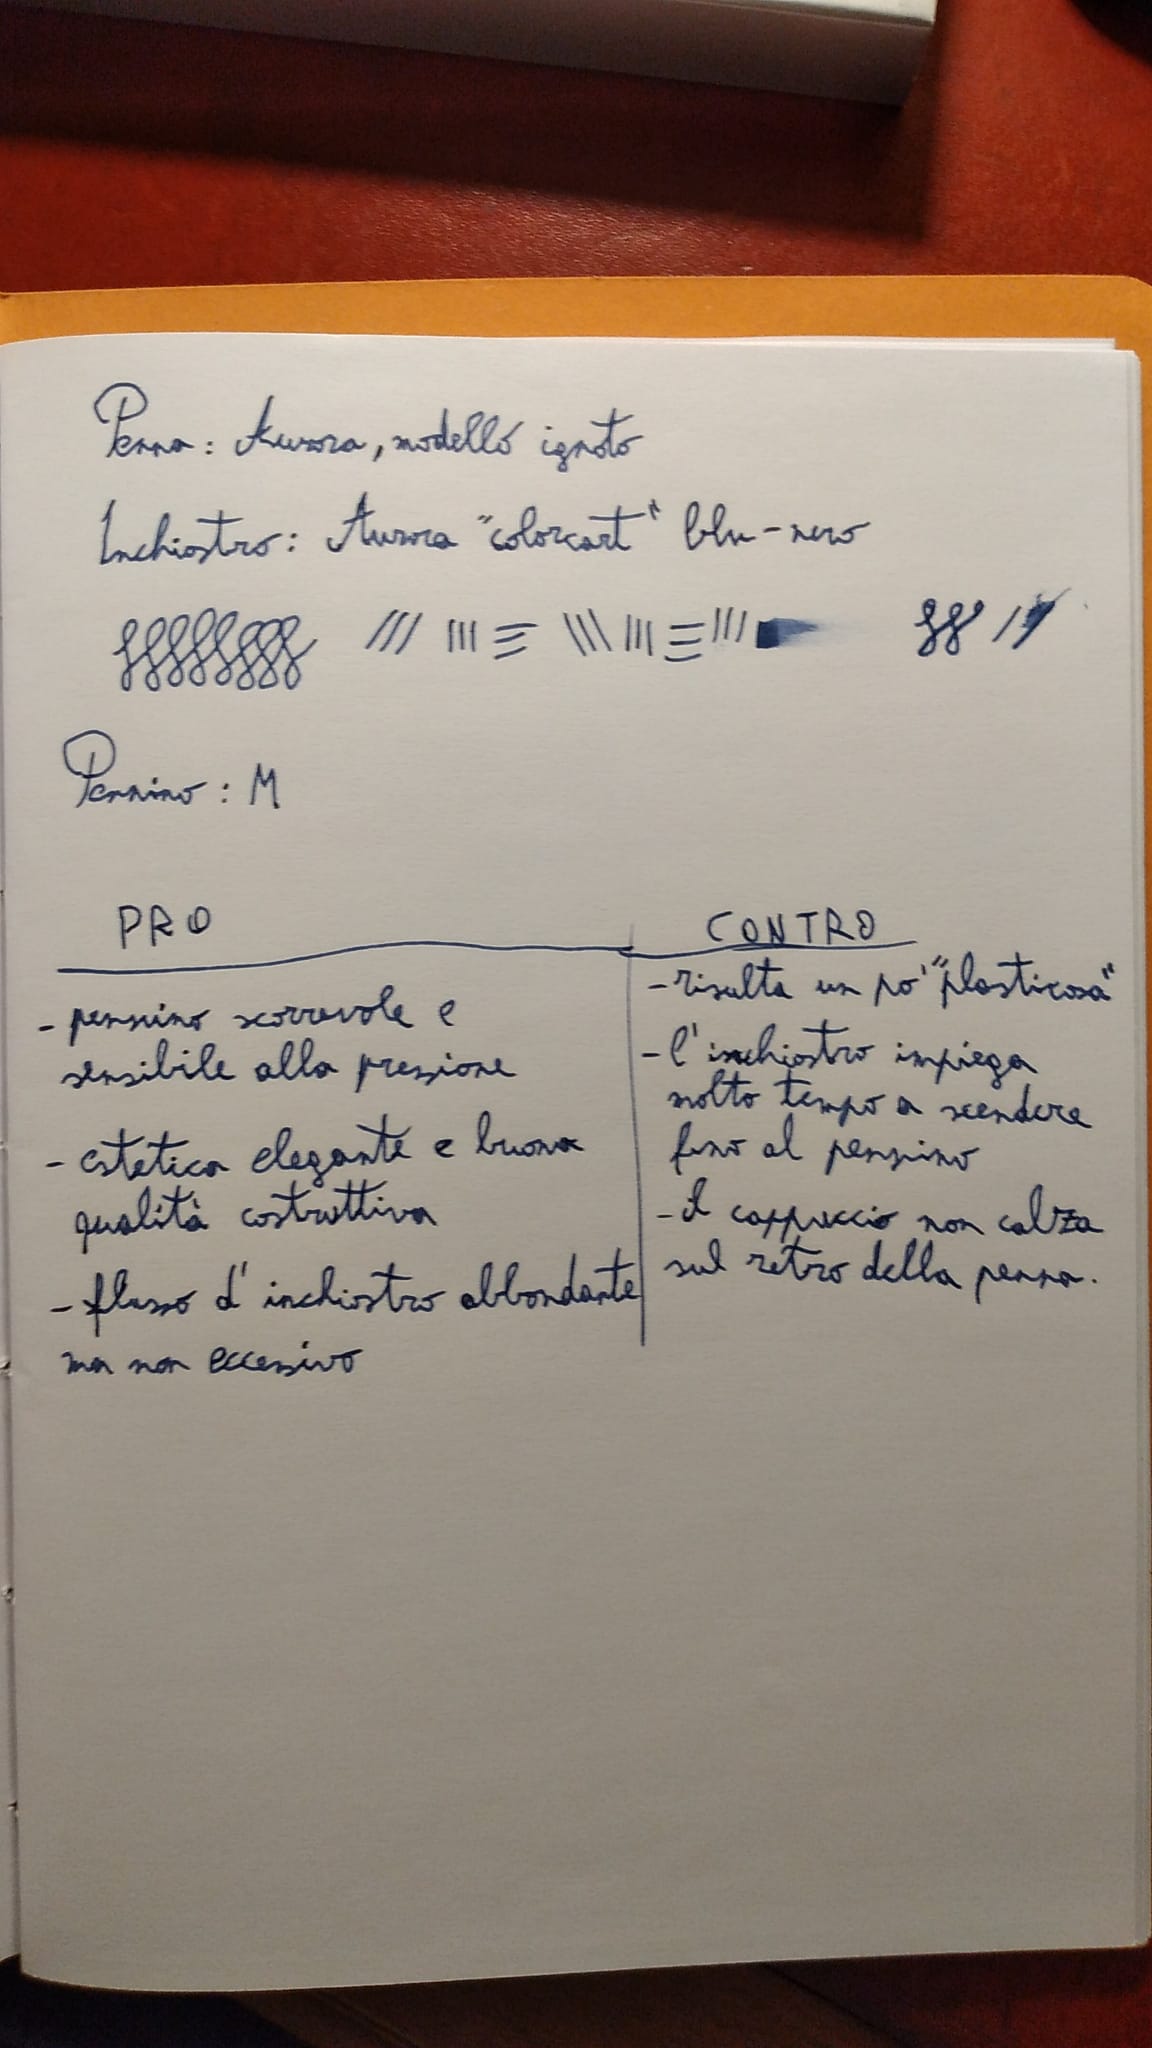 Penna: Aurora, modello ignoto
Inchiostro: Aurora "colorcart" blu-nero
Pennino: M
PRO
- pennino scorrevole e
sensibile alla pressione
- estetica elegante e buona
qualità costruttiva
- flusso d'inchiostro abbondante
ma non eccessivo
CONTRO
- risulta un po' "plasticosa"
- l'inchiostro impiega
molto tempo a scendere
fino al pennino
- il cappuccio non calza
sul retro della penna.